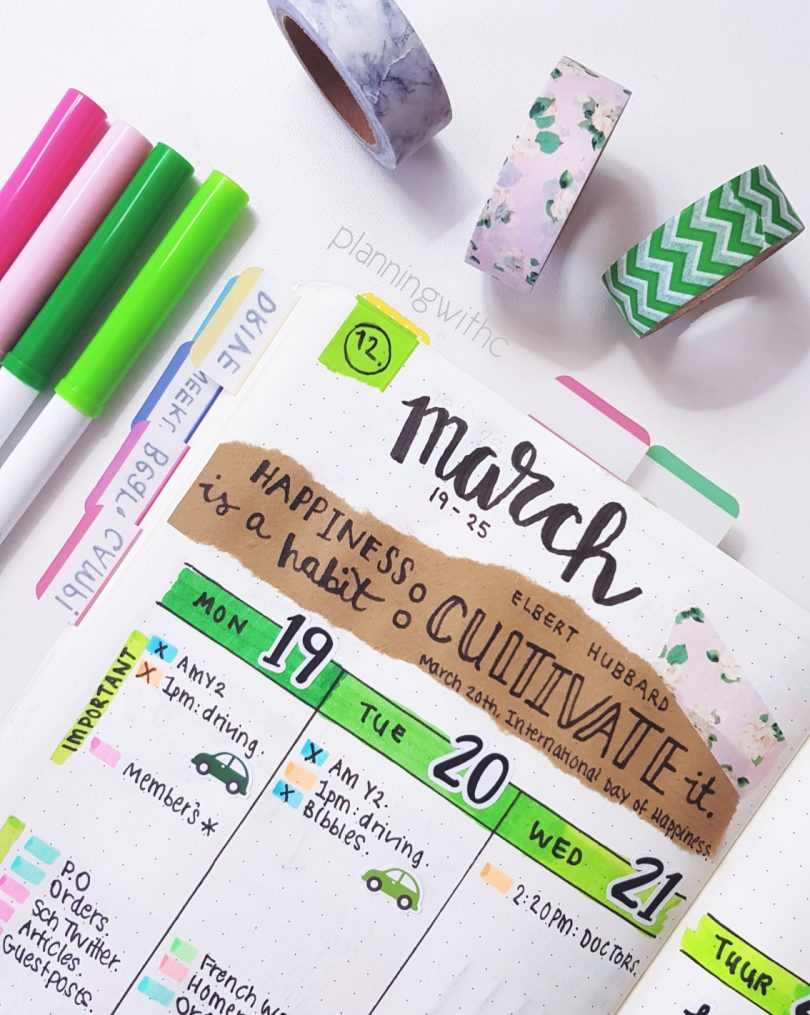 planningwithc
DRIVE
WEEK!
Bear,
CAMP!
12.
march
19-25
HAPPINESS
is a habit:
ELBERT HUBBARD
CULTIVATE it.
March 20th, International Day of Happiness.
MON 19
IMPORTANT
x AmY2
x 1pm: driving.
Members*
TUE 20
x Am Y2.
1pm: driving.
x Bibbles.
WED 21
2:20pm: DOCTORS.
P.O
Orders.
Sch Twitter.
Articles.
Guest posts.
French
THUR